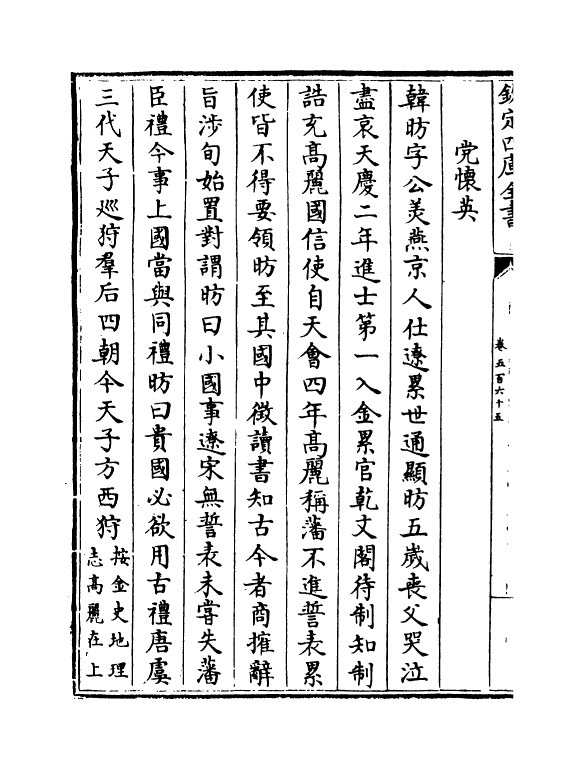 欽定四庫全書
卷五百六十五
党懷英
韓昉字公美燕京人仕遼累世通顯昉五歲喪父哭泣
盡哀天慶二年進士第一入金累官乾文閣待制知制
誥充高麗國信使自天會四年高麗稱藩不進誓表累
使皆不得要領昉至其國中徵讀書知古今者商搉辭
旨涉旬始置對謂昉曰小國事遼宋無誓表未嘗失藩
臣禮今事上國當與同禮昉曰貴國必欲用古禮唐虞
三代天子巡狩羣后四朝今天子方西狩
按金史地理
志高麗在上